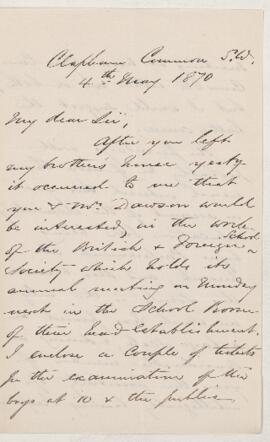 Clapham Common S.W.
4th May 1870
My dear Sir,
After you left
my brother's house yesty
it occurred to me that
you & Mrs Dawson would
be interested in the work
of the British & Foreign School
Society which holds its
annual meeting on Monday
next in the School Room
of their head Establishment.
I enclose a couple of tickets
for the examination of the
boys at 10 & the public